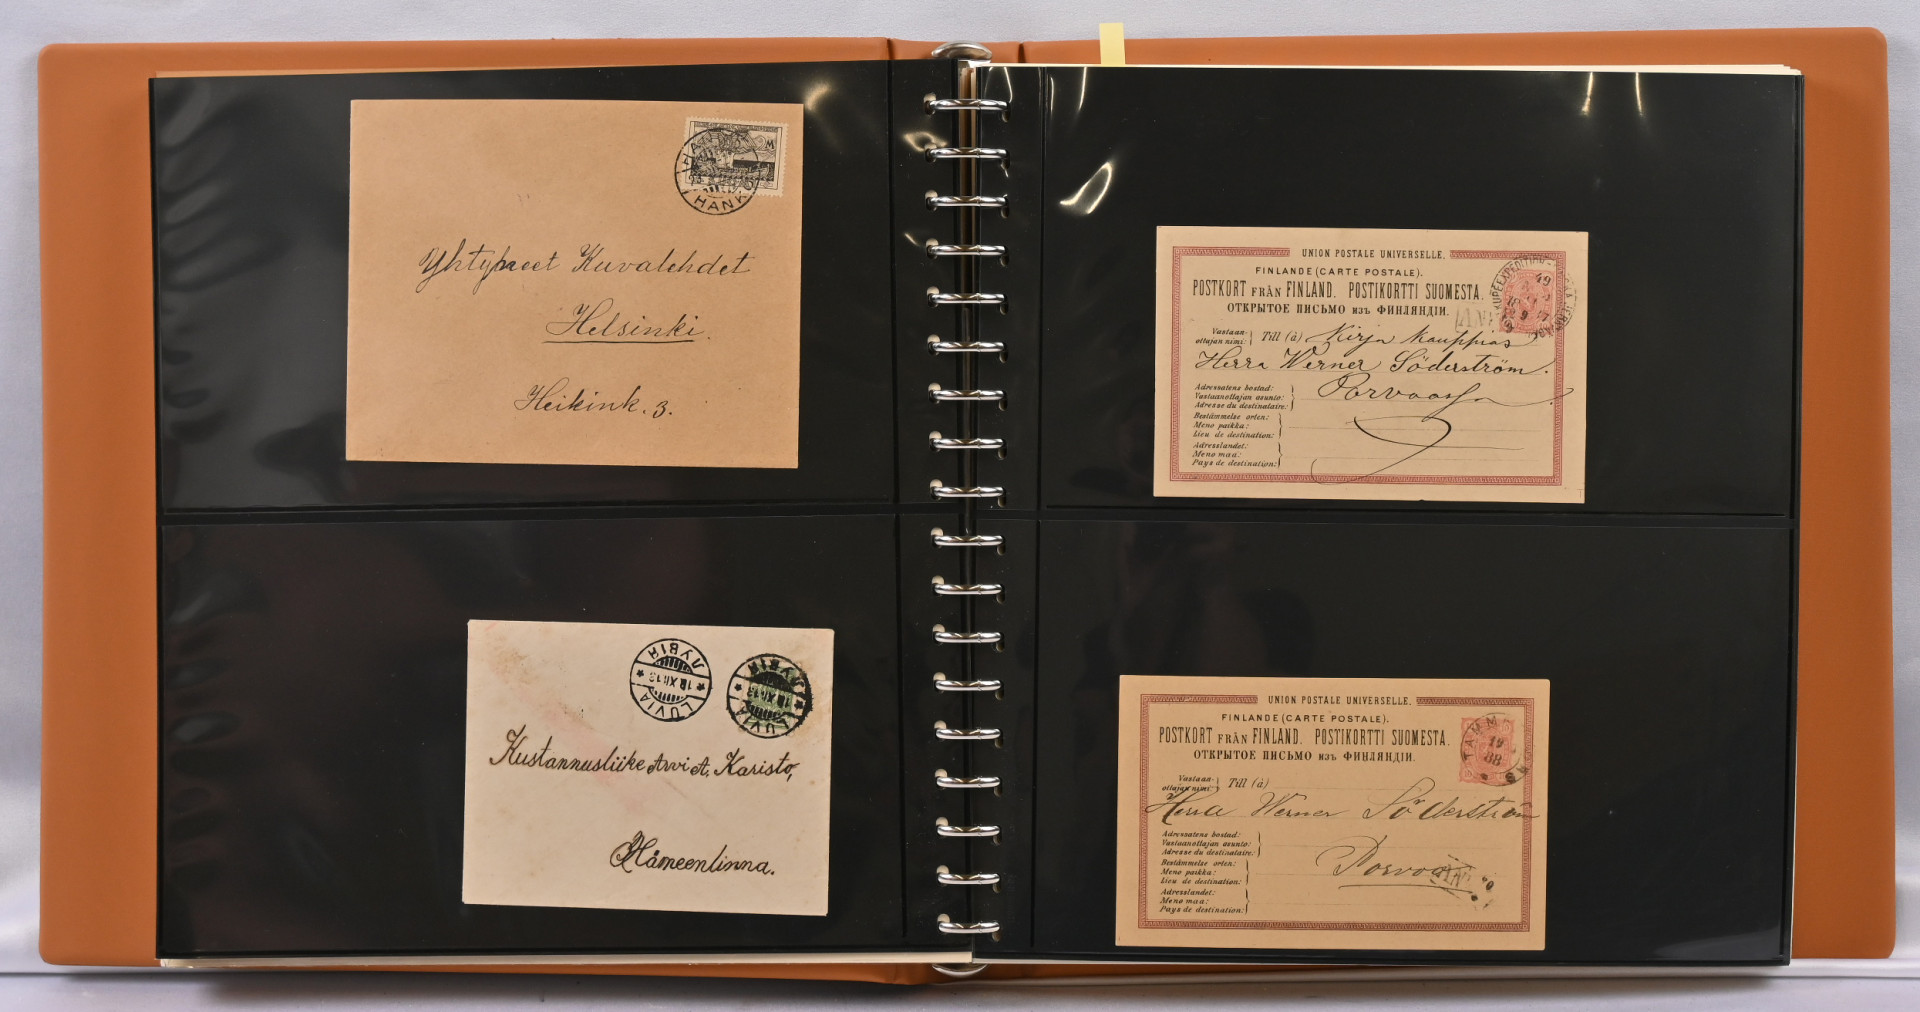 HANK
Yhtyneet Kuvalehdet
Helsinki.
Heikink. 3.
ЛУВІЯ
18.XII.13
LUVIA
ЛУВІЯ
18.XII.13
LUVIA
Kustannusliike Arvi A. Karisto,
Hämeenlinna.
UNION POSTALE UNIVERSELLE.
FINLANDE (CARTE POSTALE).
POSTKORT FRÅN FINLAND. POSTIKORTTI SUOMESTA.
ОТКРЫТОЕ ПИСЬМО изъ ФИНЛЯНДІИ.
Vastaan-
ottajan nimi:
Till (à) Kirja kauppias
Herra Werner Söderström.
Adressatens bostad:
Vastaanottajan asunto:
Adresse du destinataire:
Porvoossa
Bestämmelse orten:
Meno paikka:
Lieu de destination:
Adresslandet:
Meno maa:
Pays de destination:
UNION POSTALE UNIVERSELLE.
FINLANDE (CARTE POSTALE).
POSTKORT FRÅN FINLAND. POSTIKORTTI SUOMESTA.
ОТКРЫТОЕ ПИСЬМО изъ ФИНЛЯНДІИ.
Vastaan-
ottajan nimi:
Till (à)
Herra Werner Söderström
Adressatens bostad:
Vastaanottajan asunto:
Adresse du destinataire:
Porvoo
Bestämmelse orten:
Meno paikka:
Lieu de destination:
Adresslandet:
Meno maa:
Pays de destination:
19
88